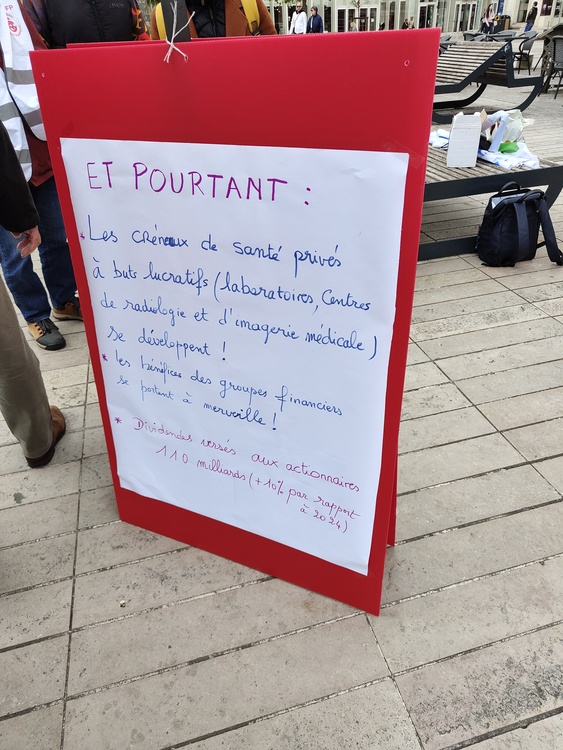 ET POURTANT :
* Les créneaux de santé privés
à buts lucratifs (laboratoires, Centres
de radiologie et d'imagerie médicale)
se développent !
* les bénéfices des groupes financiers
se portent à merveille !
* Dividendes versés aux actionnaires
110 milliards (+10% par rapport
à 2024)